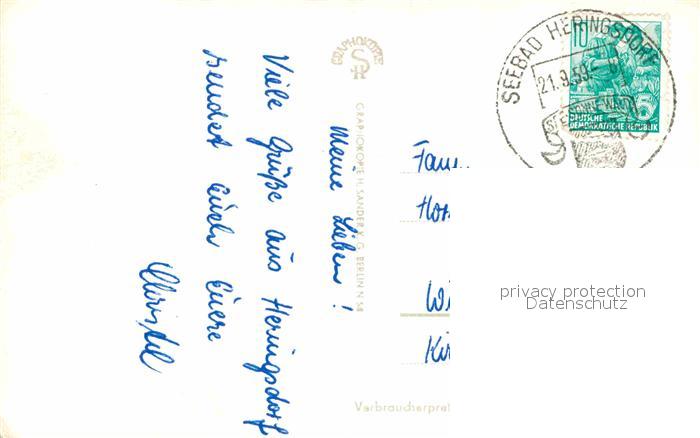 Meine Lieben!
Viele Grüße aus Heringsdorf
sendet Euch Eure
Christel
GRAPHOKOPIE
GRAPHOKOPIE H. SANDER K.G. BERLIN N 58
SEEBAD HERINGSDORF
21.9.59
10
DEUTSCHE
DEMOKRATISCHE REPUBLIK
Fam
Wi
Kir
privacy protection
Datenschutz
Verbraucherpre